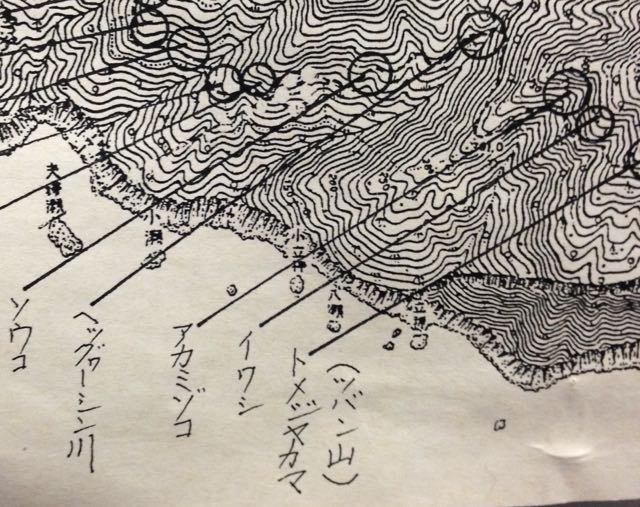 (ツバン山)
トメジャカマ
イワシ
アカミゾコ
ヘッグァーシン川
ソウコ
立神
八瀬
小立神
小瀬
夫婦瀬